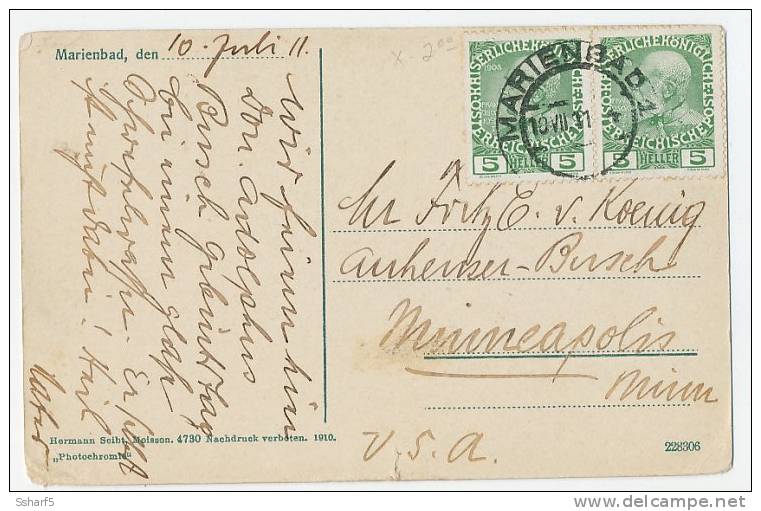 Marienbad, den 10. Juli 11.
x - 2 00
Wir feiern hier
Don. Adolphus
Busch Geburtstag
bei einem Glas
dabei! Heil
Vater
KAISERLICHE KÖNIGLICHE
1908
ÖSTERREICHISCHE
5 HELLER 5
KAISERLICHE KÖNIGLICHE
ÖSTERREICHISCHE POST
5 HELLER 5
MARIENBAD 1
10 VII 11
Mr Fritz E. v. Koenig
Anheuser-Busch
Minneapolis
Minn
U. S. A.
Hermann Seibt, Meissen. 4730 Nachdruck verboten. 1910.
„Photochromie“
228306
Ssharf5
delcampe.net